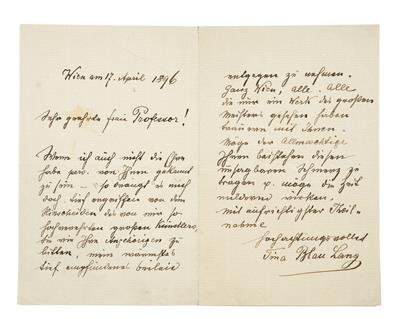 Wien am 17. April 1896
Sehr geehrte Frau Professor!
Wenn ich auch nicht die Ehre
habe per. von Ihnen gekannt
zu sein – so drängt es mich
doch tief ergriffen von dem
Hinscheiden des von mir so
hochverehrten großen Künstlers,
Sie zu bitten, mein wärmstes
tief empfundenes Beileid
entgegen zu nehmen.
Ganz Wien, alle. Alle
die nur ein Werk des großen
Meisters gesehen haben
trauern mit Ihnen.
Möge der Allmächtige
Ihnen beistehen diesen
unsagbaren Schmerz zu
tragen u. möge die Zeit
mildernd wirken.
Mit aufrichtigster Theil-
nahme
Hochachtungsvollst
Tina Blau Lang